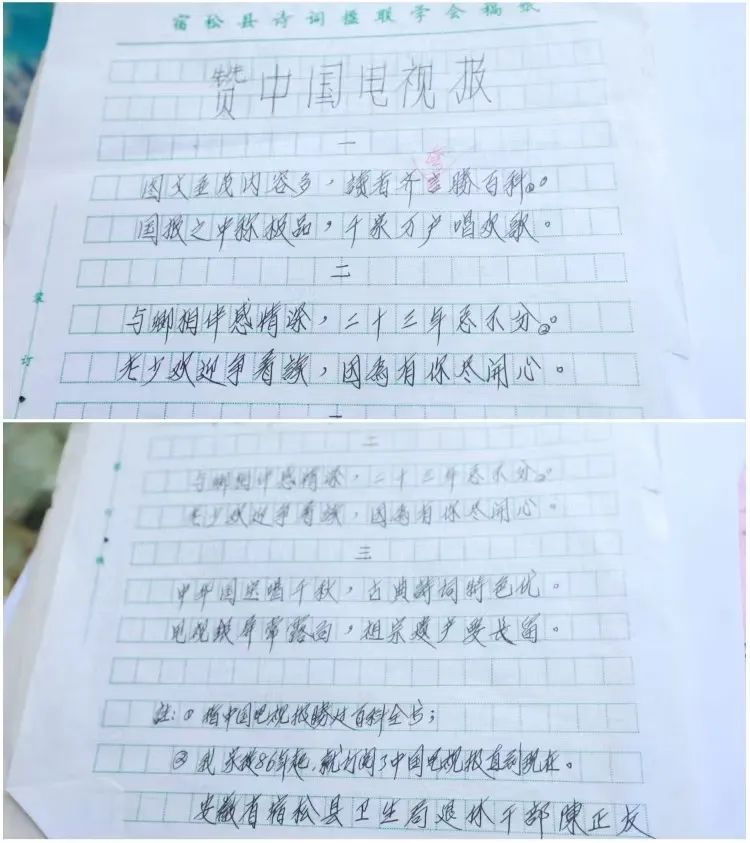 宿松县诗词楹联学会稿纸
赞中国电视报
一
言
图文并茂内容多，读者齐言勝百科①。
国报之中称极品，千家万户唱欢歌。
二
装
与卿相伴感情深，二十三年总不分②。
订
老少欢迎争看读，因為有你尽开心。
二
与卿相伴感情深，二十三年总不分②。
老少欢迎争看读，因為有你尽开心。
三
中华国宝唱千秋，古典詩词特色优。
电视银屏常露面，祖宗遗产要长留。
註：①指中国电视报勝过百科全书；
②我家从86年起，就订阅了中国电视报直到现在。
安徽省宿松县卫生局退休干部陳正友